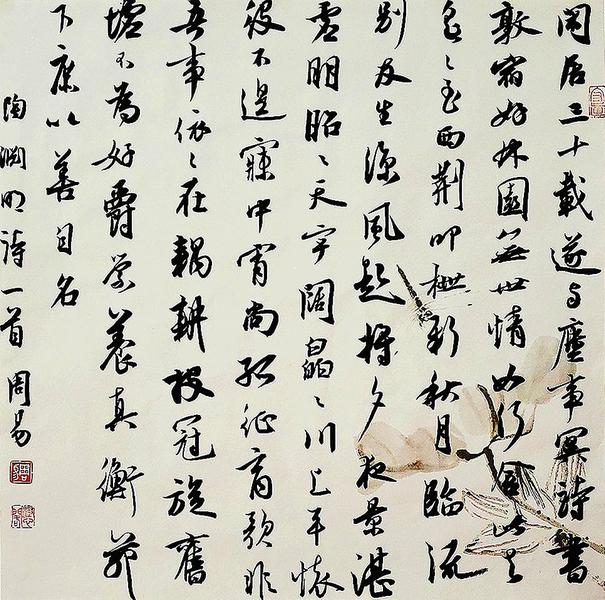 閑居三十載遂与塵事冥詩書
敦宿好林園無世情如何舍此去
遥々至西荊叩枻新秋月臨流
別友生涼風起將夕夜景湛
虛明昭々天宇闊皛々川上平懷
役不遑寐中宵尚孤征商歌非
吾事依々在耦耕投冠旋舊
墟不為好爵縈養真衡茅
下庶以善自名
陶淵明詩一首 周易